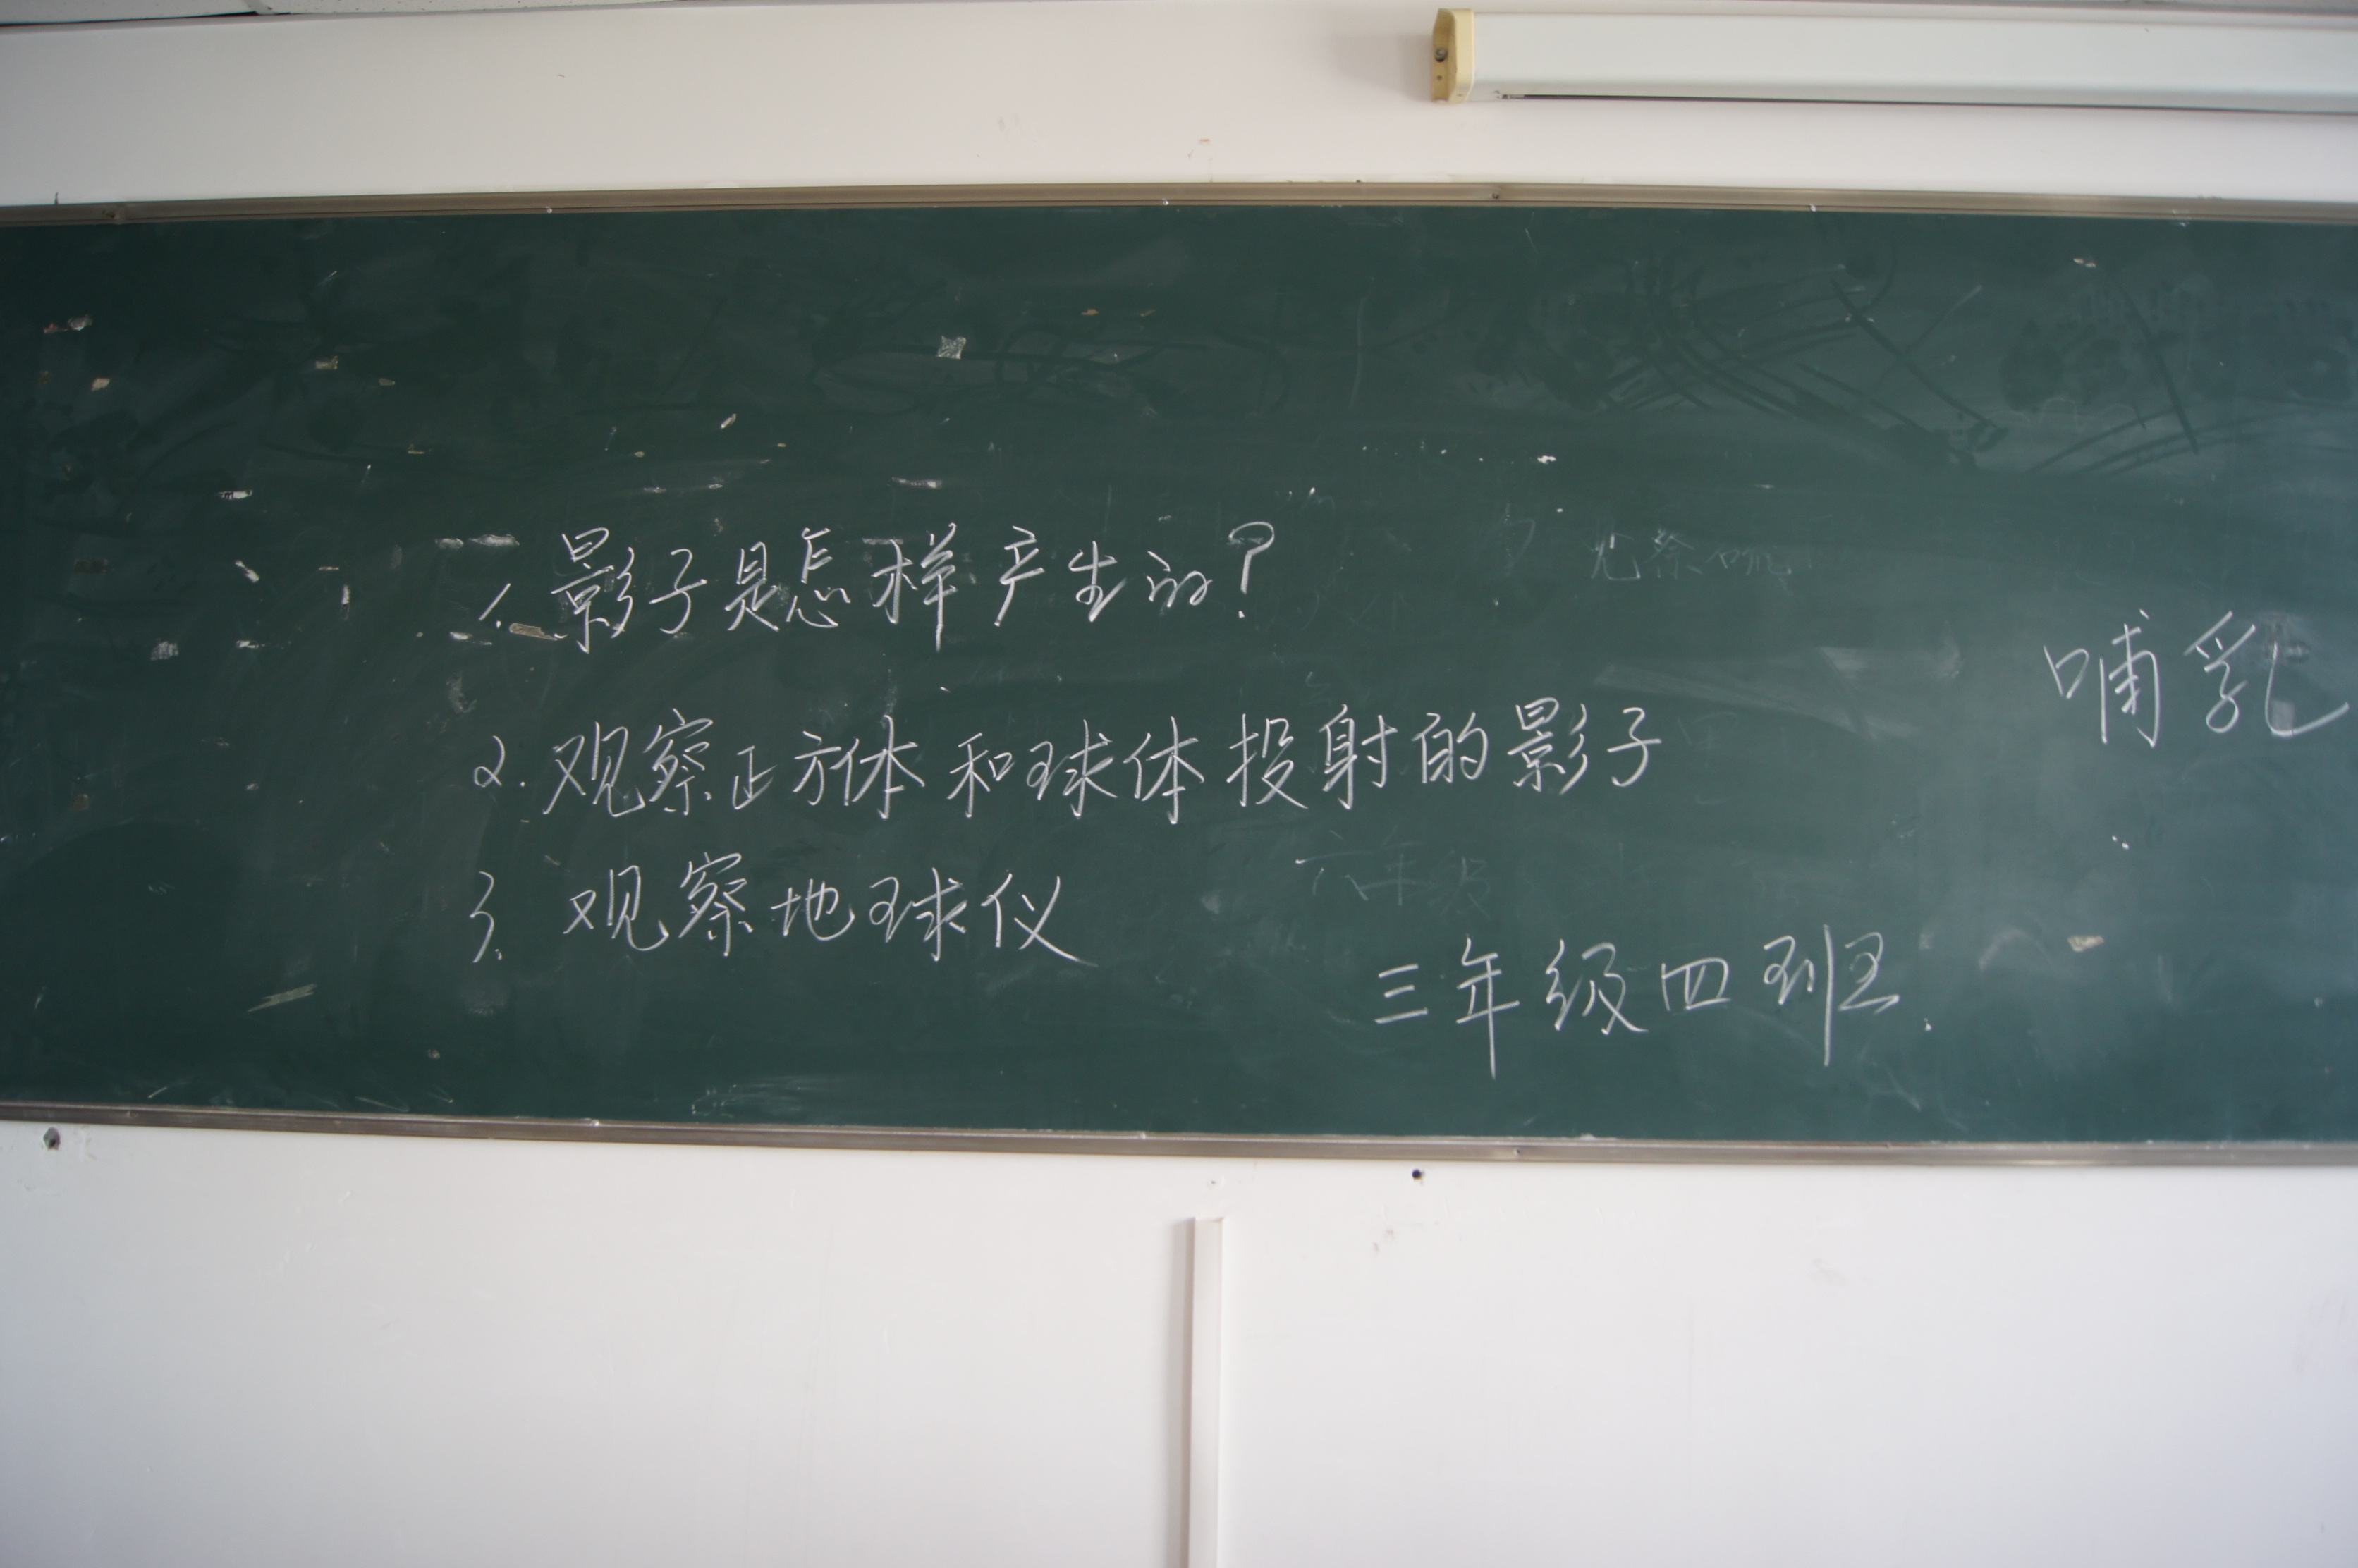 1. 影子是怎样产生的?
2. 观察正方体和球体投射的影子
3. 观察地球仪
三年级四班
哺乳
六年级